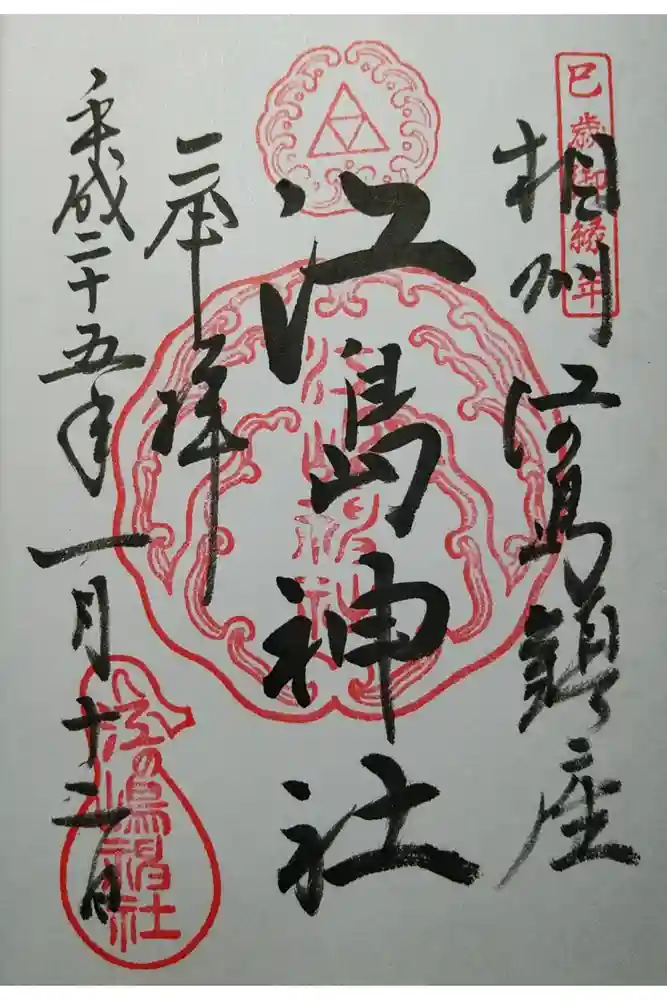 巳歳御縁年
相州江の島鎮座
江島神社
奉拝
平成二十五年一月十三日
江嶋神社
江の嶋神社